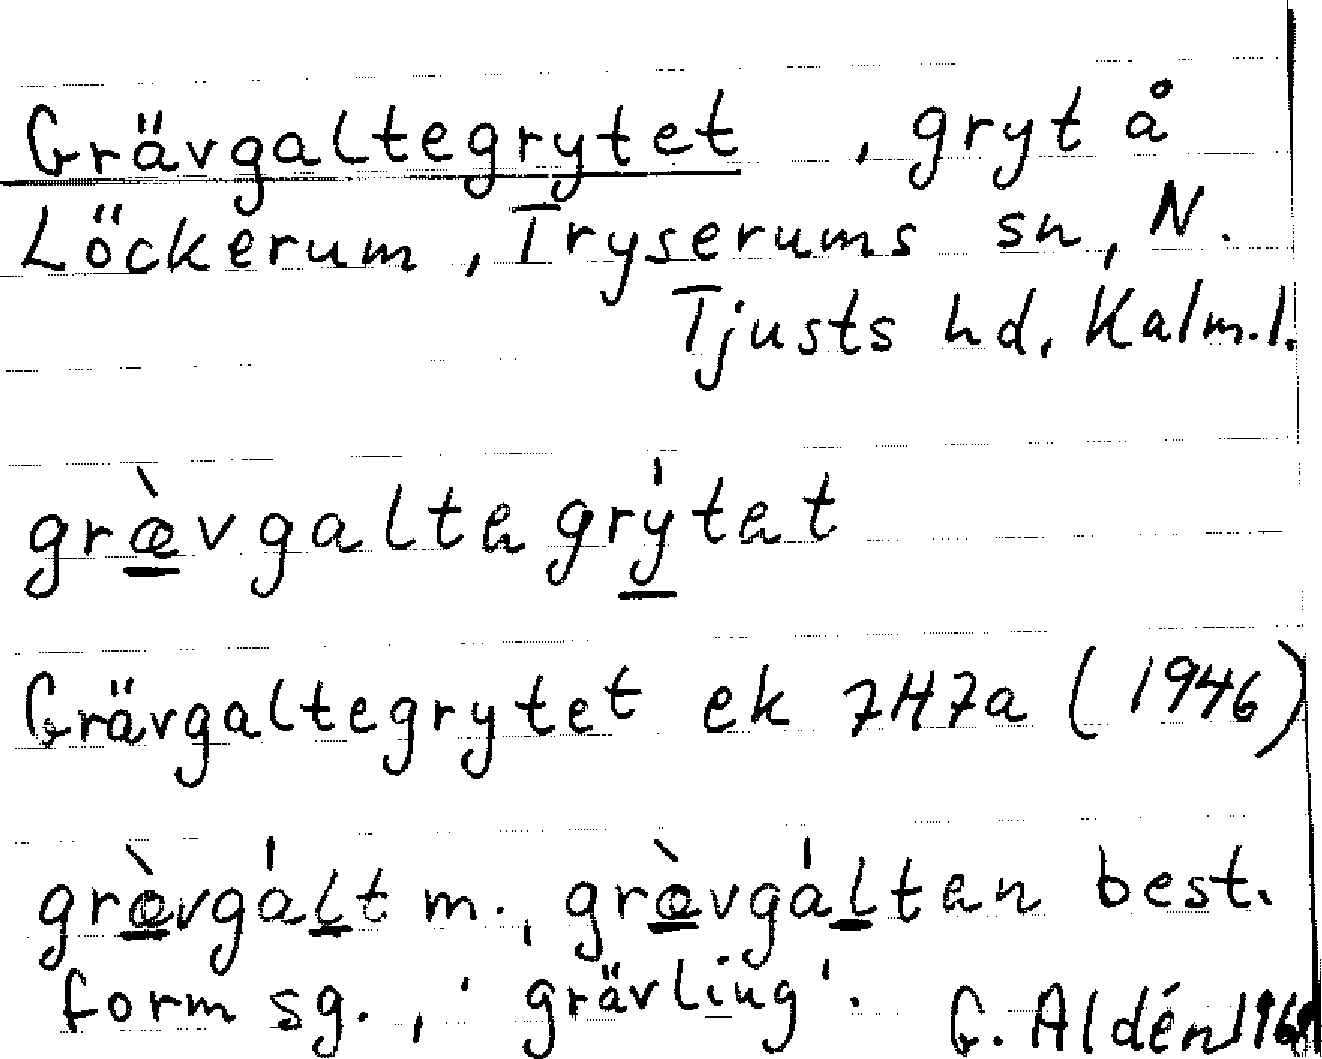 Grävgaltegrytet , gryt å
Löckerum , Tryserums sn, N.
Tjusts hd, Kalm.l.
græ̀vgaltegrýtet
Grävgaltegrytet ek 7H7a (1946)
græ̀vgált m., græ̀vgálten best.
form sg., 'grävling'. G. Aldén